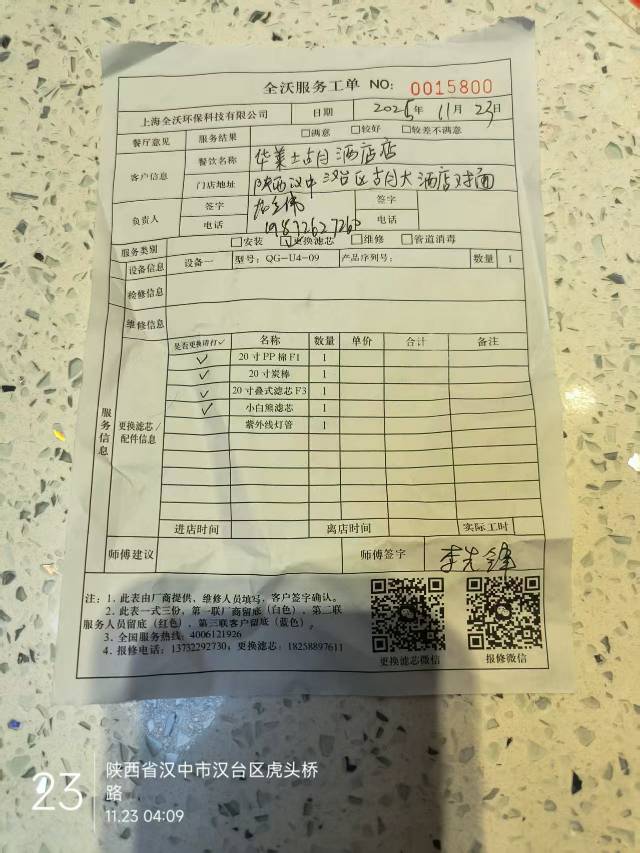 全沃服务工单 NO: 0015800
上海全沃环保科技有限公司 日期 2025年 11月 23日
餐厅意见 服务结果 □满意 □较好 □较差不满意
客户信息 餐饮名称 华莱士占月酒店店
门店地址 陕西汉中汉台区占月大酒店对面
负责人 签字 签字
电话 电话
服务类别 □安装 ☑更换滤芯 □维修 □管道消毒
设备信息 设备一 型号: QG-U4-09 产品序列号: 数量 1
检修信息
维修信息
服务信息 更换滤芯/配件信息
是否更换请打✓ 名称 数量 单价 合计 备注
✓ 20寸PP棉F1 1
✓ 20寸炭棒 1
✓ 20寸叠式滤芯F3 1
✓ 小白熊滤芯 1
紫外线灯管 1
进店时间 离店时间 实际工时
师傅建议 师傅签字 李先锋
注: 1. 此表由厂商提供,维修人员填写,客户签字确认。
2. 此表一式三份,第一联厂商留底(白色),第二联
服务人员留底(红色),第三联客户留底(蓝色)。
3. 全国服务热线: 4006121926
4. 报修电话: 13732292730, 更换滤芯: 18258897611
更换滤芯微信 报修微信
23 陕西省汉中市汉台区虎头桥
路
11.23 04:09